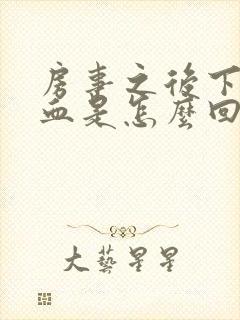 房事之後下
血是怎麼回
大藝星星